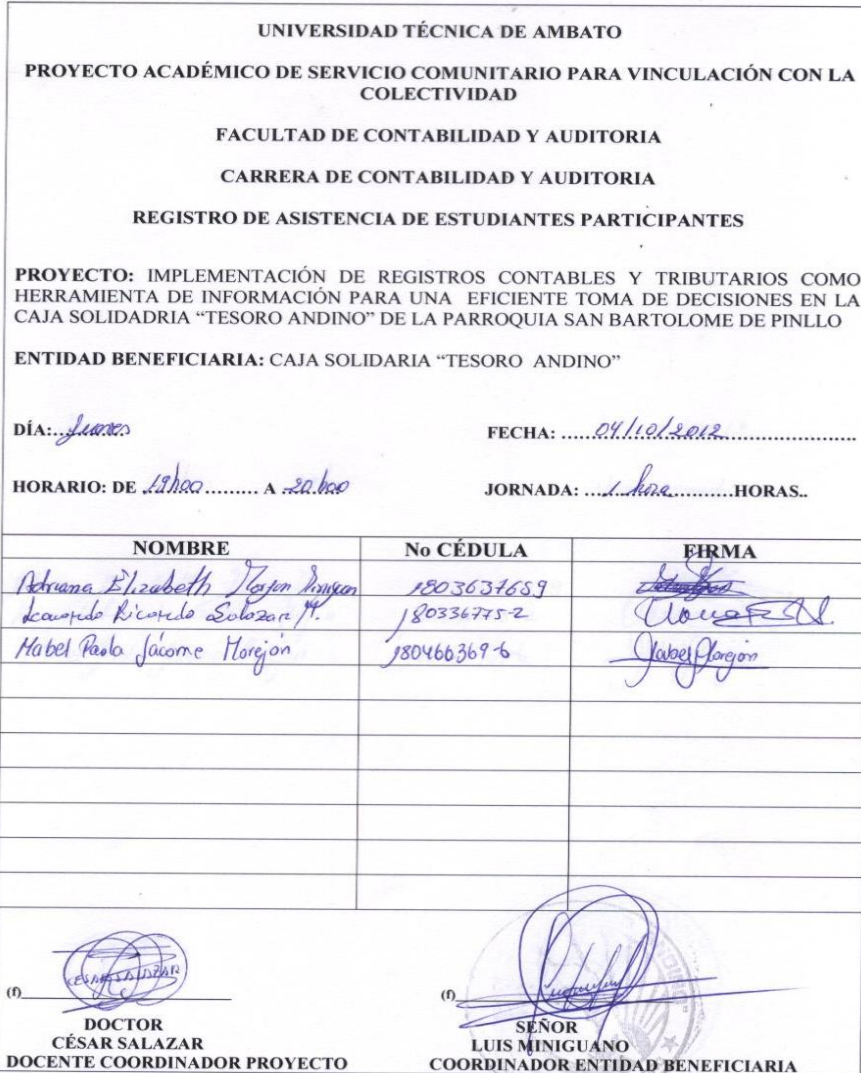 UNIVERSIDAD TÉCNICA DE AMBATO
PROYECTO ACADÉMICO DE SERVICIO COMUNITARIO PARA VINCULACIÓN CON LA
COLECTIVIDAD
FACULTAD DE CONTABILIDAD Y AUDITORIA
CARRERA DE CONTABILIDAD Y AUDITORIA
REGISTRO DE ASISTENCIA DE ESTUDIANTES PARTICIPANTES
PROYECTO: IMPLEMENTACIÓN DE REGISTROS CONTABLES Y TRIBUTARIOS COMO
HERRAMIENTA DE INFORMACIÓN PARA UNA EFICIENTE TOMA DE DECISIONES EN LA
CAJA SOLIDADRIA “TESORO ANDINO” DE LA PARROQUIA SAN BARTOLOME DE PINLLO
ENTIDAD BENEFICIARIA: CAJA SOLIDARIA “TESORO ANDINO”
DÍA: FECHA: 04/10/2012
HORARIO: DE 19h00 A 20h00 JORNADA: 1 hora HORAS..
NOMBRE No CÉDULA FIRMA
Adriana Elizabeth 1803637659
Leonardo Ricardo Salazar M. 180336775-2
Mabel Paola Jácome Morejón 180466369-6 Mabel Morejon
CESAR SALAZAR
(f) (f)
DOCTOR SEÑOR
CÉSAR SALAZAR LUIS MINIGUANO
DOCENTE COORDINADOR PROYECTO COORDINADOR ENTIDAD BENEFICIARIA